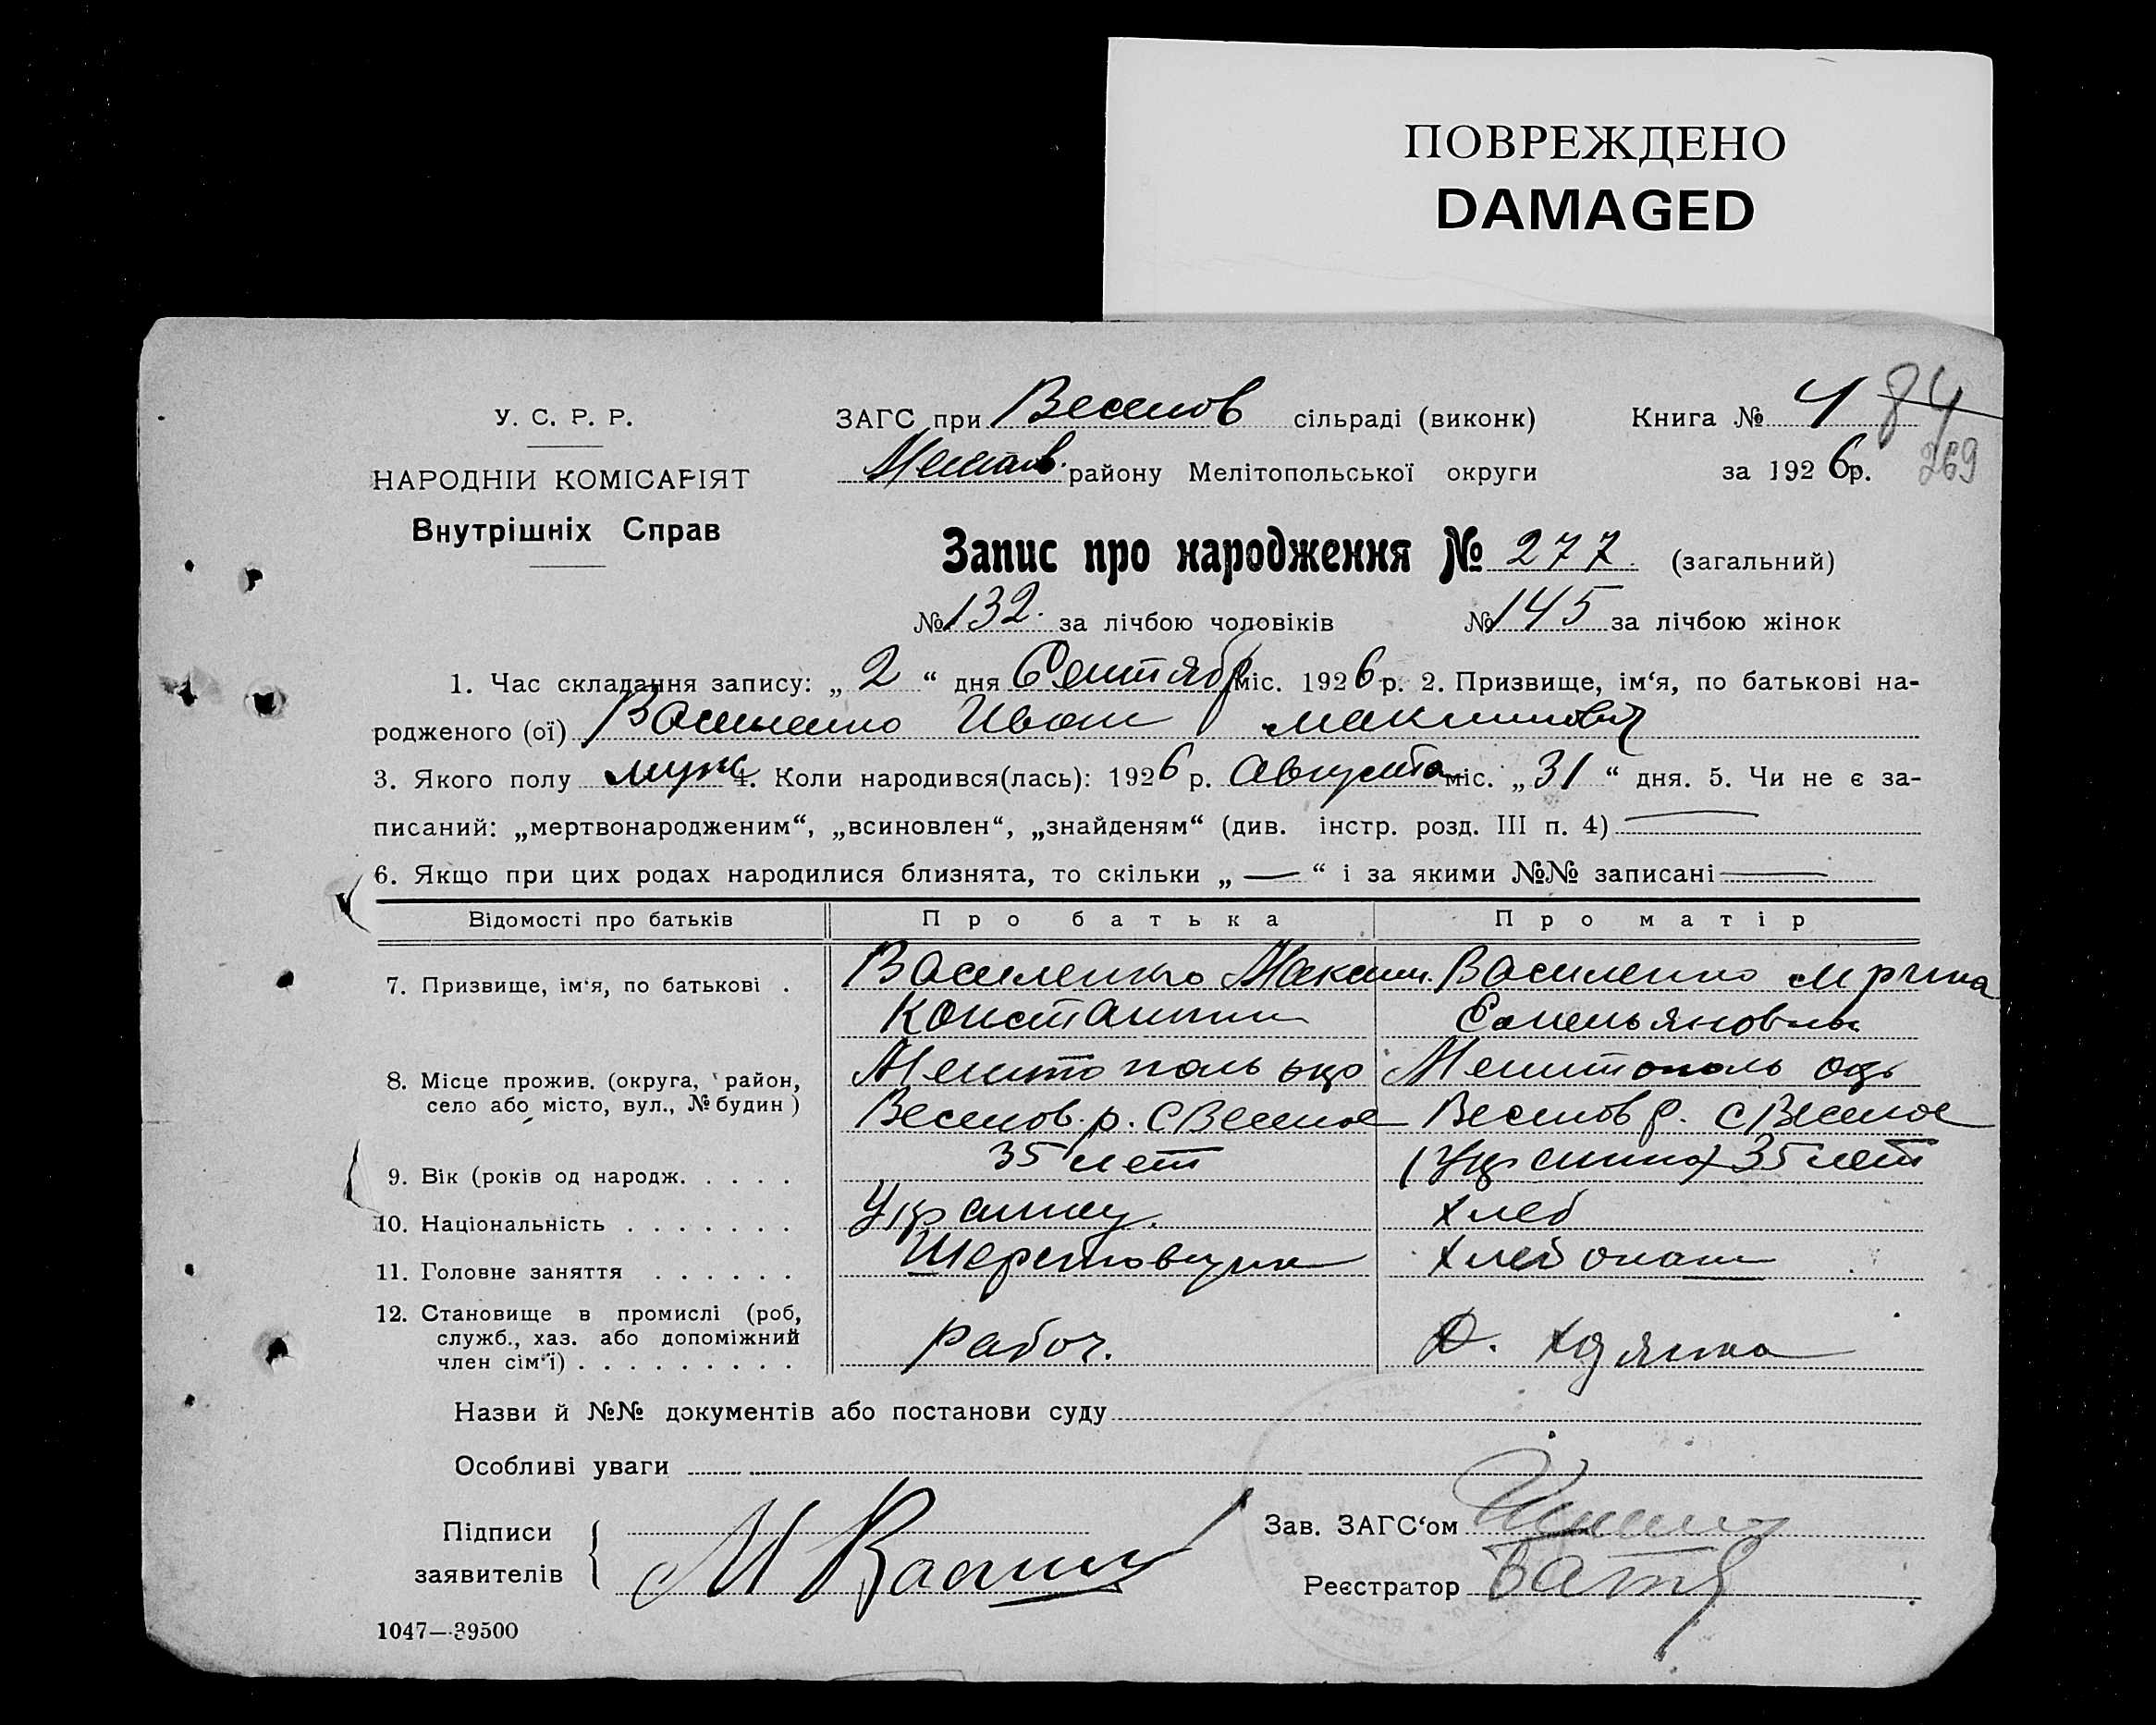 ПОВРЕЖДЕНО
DAMAGED
У. С. Р. Р.
НАРОДНІЙ КОМІСАРІЯТ
Внутрішніх Справ
ЗАГС при Веселов сільраді (виконк)
Книга № 4 84
району Мелітопольської округи
за 1926 р. 269
Запис про народження № 277. (загальний)
№ 132. за лічбою чоловіків № 145 за лічбою жінок
1. Час складання запису: „ 2 “ дня Сентябр міс. 1926 р. 2. Призвище, ім‘я, по батькові на-
родженого (ої) Василенко Иван Максимович
3. Якого полу муж 4. Коли народився(лась): 1926 р. Августа міс. „ 31 “ дня. 5. Чи не є за-
писаний: „мертвонародженим“, „всиновлен“, „знайденям“ (див. інстр. розд. III п. 4) —
6. Якщо при цих родах народилися близнята, то скільки „ — “ і за якими №№ записані —
Відомості про батьків Про батька Про матір
7. Призвище, ім‘я, по батькові . Василенко Максим. Василенко Ирина
Константин Емельяновна
8. Місце прожив. (округа, район, Мелитополь окр Мелитополь окр
село або місто, вул., № будин) Веселов. р. с Веселое Веселов р. с Веселое
9. Вік (років од народж. . . . . . 35 лет (Украинка) 35 лет
10. Національність . . . . . . . Украинец. хлеб
11. Головне заняття . . . . . . Шерстовщик хлебопаш
12. Становище в промислі (роб,
служб., хаз. або допоміжний рабоч. хозяйка
член сім‘ї) . . . . . . . . .
Назви й №№ документів або постанови суду
Особливі уваги
Підписи
заявителів М Васил
Зав. ЗАГС‘ом
Реєстратор
1047—39500